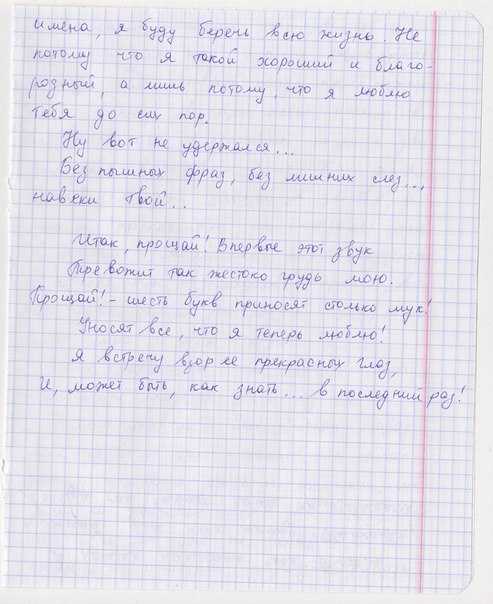 имена, я буду беречь всю жизнь. Не
потому что я такой хороший и благо-
родный, а лишь потому, что я люблю
тебя до сих пор.
Ну вот не удержался...
Без пышных фраз, без лишних слез...,
навеки Твой...
Итак, прощай! Впервые этот звук
Тревожит так жестоко грудь мою.
Прощай! - шесть букв приносят столько мук!
Уносят все, что я теперь люблю!
Я встречу взор ее прекрасных глаз,
И, может быть, как знать... в последний раз!